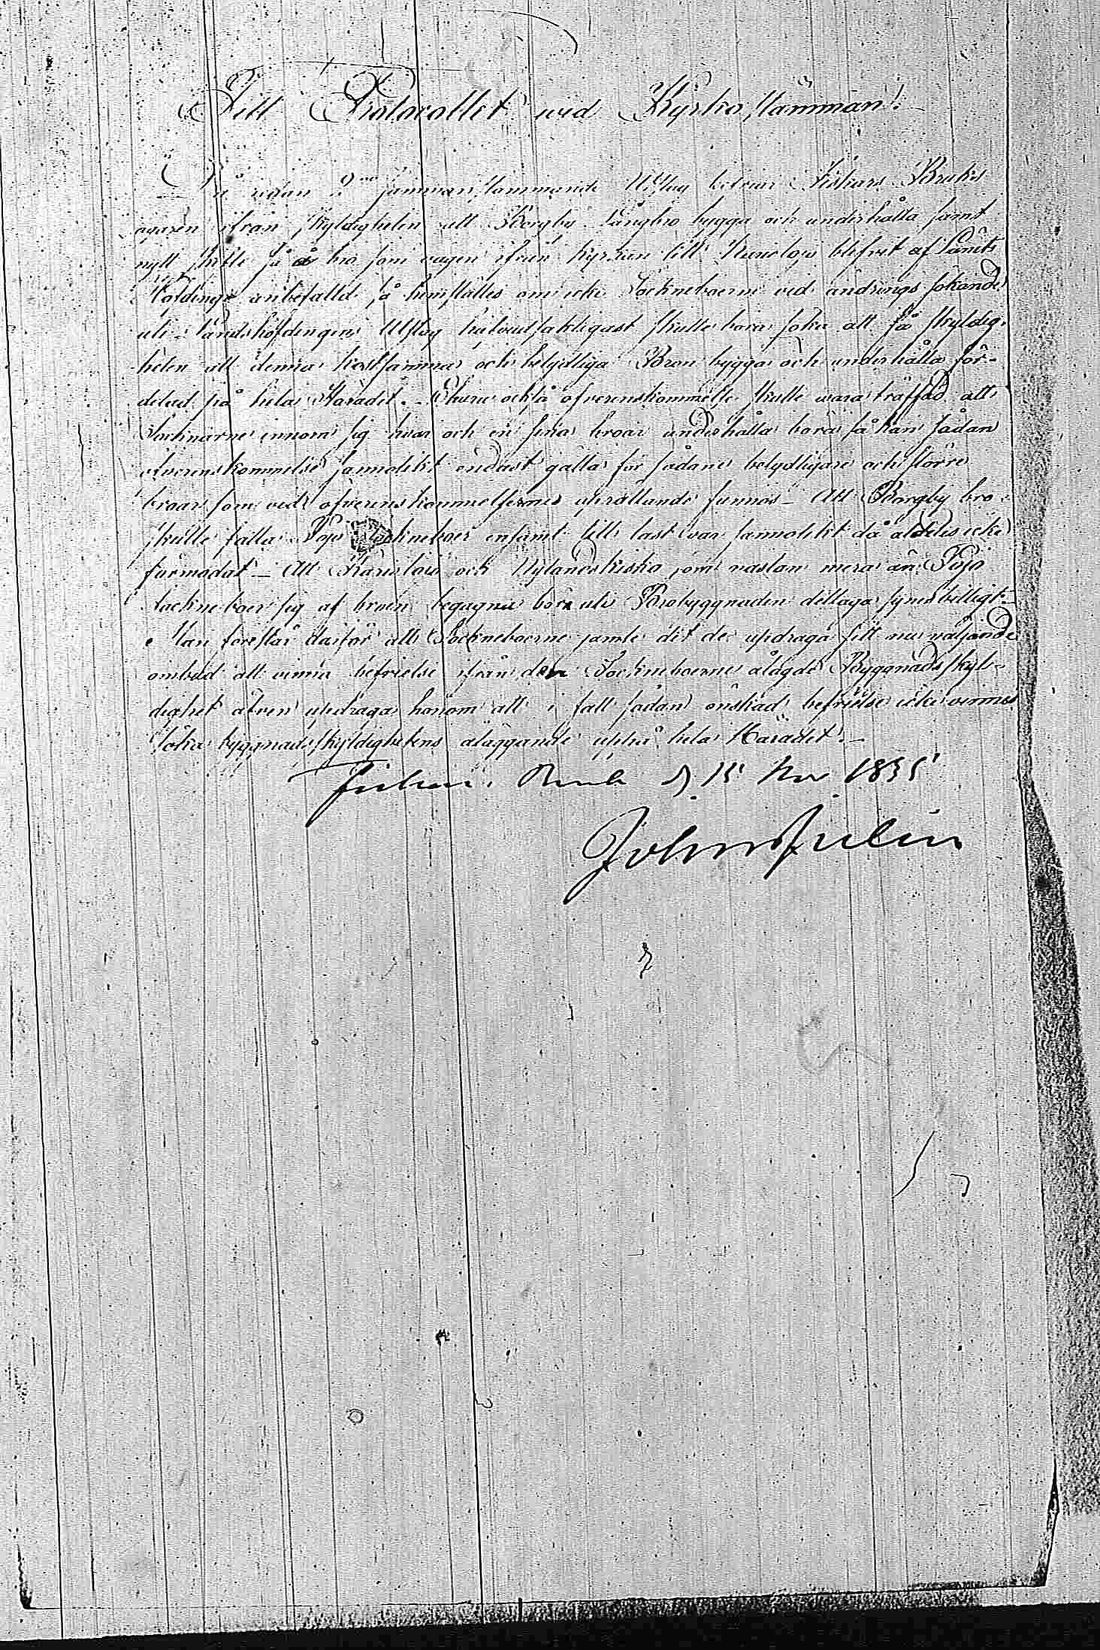 Till Protocollet wid Kyrko stämman!
På sedan 2ne sammanstämmande Utslag Fiskars Bruks
ägaren ifrån skyldigheten att Borgby Långbro bygga och underhålla samt
nytt skifte på bro som vägen ifrån kyrkan till Karislojo blifvit af Lands
höfdinge anbefalld så hemställes om icke Sockneboerne vid ändrings sökande
uti Landshöfdingens Utslag skulle böra söka att få skyldig-
heten att denna kostsamma och betydliga Bron bygga och underhålla för-
delad på hela Häradet. Ehuru också öfverenskommelse skulle wara träffad att
Socknarne innom sig hvar och en sina broar underhålla böra så kan sådan
öfverenskommelse sannolikt endast gälla för sådane betydligare och större
broar som ved öfverenskommelsernes uprättande funnos - Att Borgby bro
skulle falla Pojo Sockneboer ensamt till last var sannolikt då aldeles icke
förmodat - Att Karislojo och Nylandskisko som nästan mera än Pojo
Sockneboer sig af broen begagna böra uti Brobyggnaden deltaga synes billigt.
Man föreslår därför att Sockneboerne jämte det de updraga sitt nu väljande
ombud att vinna befrielse ifrån den Sockneboerne ålagde Byggnads skyl-
dighet äfven updraga honom att i fall sådan önskad befrielse icke vinnes
söka byggnads skyldighetens åläggande uppå hela Häradet. -
Fiskars Bruk d 15 Nov 1835
John Julin